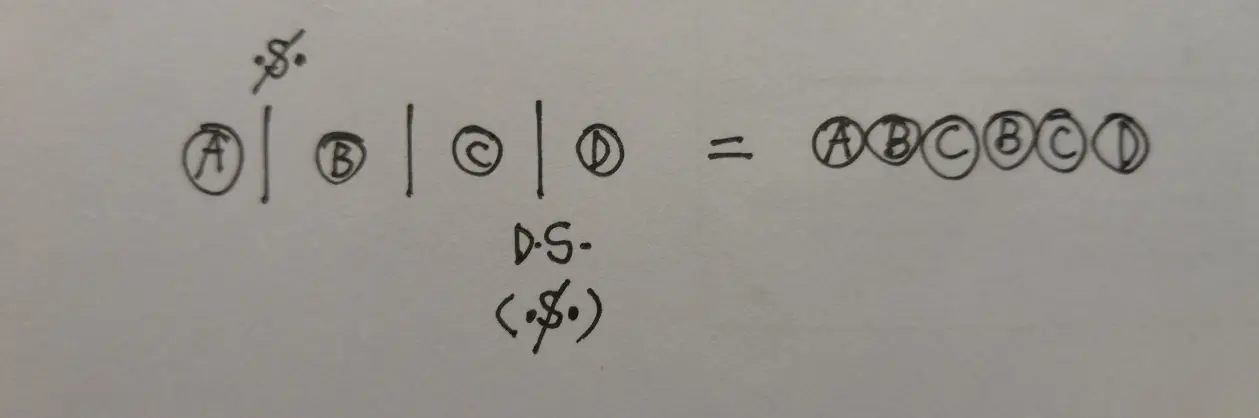 ·𝄋·
Ⓐ | Ⓑ | Ⓒ | Ⓓ = ⒶⒷⒸⒷⒸⒹ
D.S.
(𝄋)